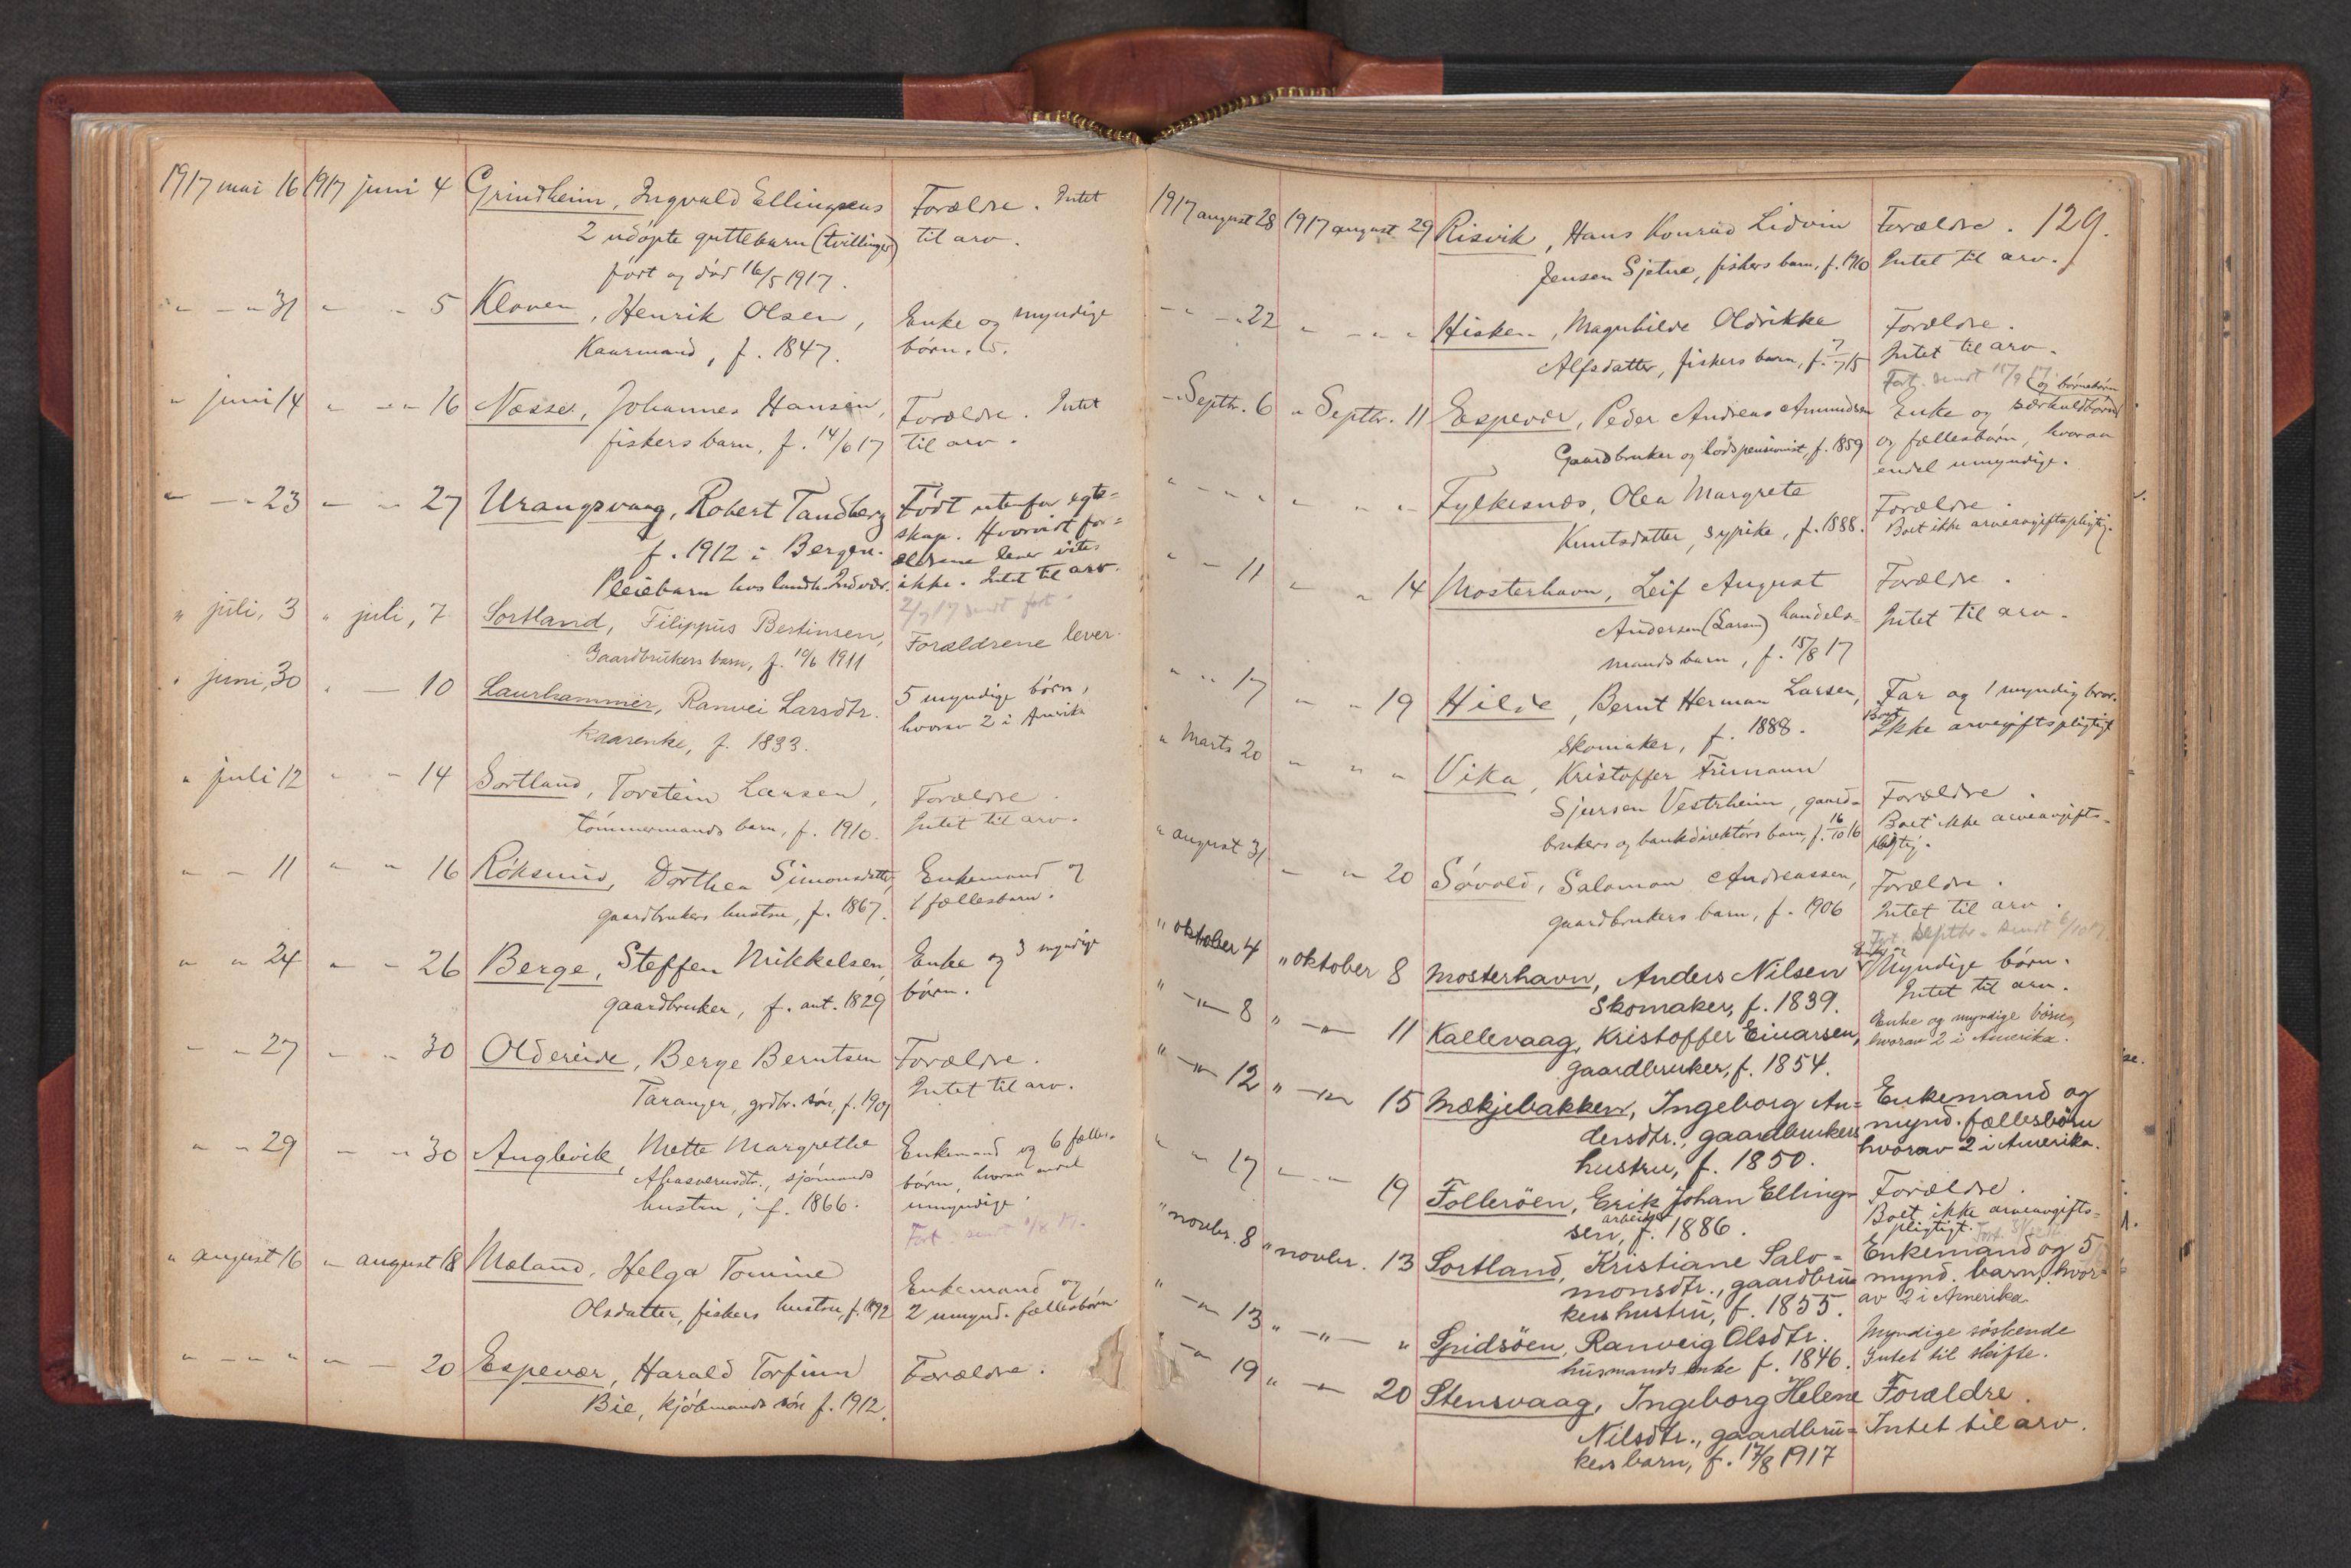 1917 mai 16 1917 juni 4 Grindheim, Ingvald Ellingsens Forældre. Intet
2 udøpte guttebarn (tvillinger) til arv.
født og død 16/5 1917.
" - " 31 " - " 5 Kloven, Henrik Olsen, Enke og myndige
Kaarmand, f. 1847. børn.
" juni 14 " - " 16 Næsse, Johannes Hansen, Forældre. Intet
fiskers barn, f. 14/6 17 til arv.
" - " 23 " - " 27 Urangsvaag, Robert Tandberg Født utenfor egte=
f. 1912 i Bergen. skap. Hvorvidt for=
Pleiebarn hos landh. Indvær. ældrene lever vites
ikke. Intet til arv.
2/7 17 sendt fort.
" juli, 3 " juli, 7 Sortland, Filippus Bertinsen, Forældrene lever.
Gaardbrukers barn, f. 10/6 1911
" juni, 30 " - 10 Laurhammer, Ranvei Larsdtr. 5 myndige børn,
kaarenke, f. 1833. hvorav 2 i Amerika
" juli 12 " - " 14 Sortland, Torstein Larsen, Forældre.
tømmermands barn, f. 1910. Intet til arv.
" - 11 " " 16 Røksund, Dorthea Simonsdatter, Enkemand og
gaardbrukers hustru, f. 1867. 1 fællesbarn.
" " 24 " - 26 Berge, Steffen Mikkelsen, Enke og 3 myndige
gaardbruker, f. ant. 1829 børn.
- " 27 " " 30 Oldereide, Berge Berntsen Forældre.
Taranger, grdbr. søn, f. 1901 Intet til arv.
" " 29 " " 30 Anglevik, Mette Margrethe Enkemand og 6 fælles-
Ahasverusdtr., sjømands børn, hvorav endel
hustru, f. 1866. umyndige.
Fort. sendt 1/8 17.
" august 16 " august 18 Mæland, Helga Tomine Enkemand og
Olsdatter, fiskers hustru, f. 1892 2 umynd. fællesbørn
" - " " " - 20 Espevær, Harald Torfinn Forældre.
Bie, kjøbmands søn f. 1912.
129.
1917 august 28 1917 august 29 Risvik, Hans Konrad Lidvin Forældre.
Jensen Sjetne, fiskers barn, f. 1910 Intet til arv.
- " - " 22 " - " " Hisken, Magnhilde Oldrikke Forældre.
Alfsdatter, fiskers barn, f. 7/15 Intet til arv.
Fort. sendt 15/9 17.
- " Septbr. 6 " Septbr. 11 Espevær, Peder Andreas Amundsen Enke og særkuldbørn (og børnebørn
Gaardbruker og lodspensionist, f. 1859 og fællesbørn, hvorav
endel umyndige.
" - " " " " " Fylkesnes, Olea Margrete Forældre.
Knutsdatter, sypike, f. 1888. Boet ikke arveavgiftspligtig.
" - 11 " " 14 Mosterhavn, Leif August Forældre.
Andersen (Larsen) handels= Intet til arv.
mands barn, f. 15/8 17
" " 17 " " 19 Hilde, Bernt Herman Larsen, Far og 1 myndig bror.
skomaker, f. 1888. Boet ikke arvegiftspligtigt
" Marts 20 " " " Vika, Kristoffer Frimann
Sjursen Vestrheim, gaard= Forældre.
brukers og bankdirektørs barn, f. 16/10 16 Boet ikke arveavgifts-
pligtig.
" august 31 " " 20 Søvold, Salomon Andreassen, Forældre.
gaardbrukers barn, f. 1906 Intet til arv.
Fort. Septbr. sendt 6/10 17
" oktober 4 " oktober 8 Mosterhavn, Anders Nilsen Enke Myndige børn.
Skomaker, f. 1839. Intet til arv.
" -"- 8 " -"- 11 Kallevaag, Kristoffer Einarsen, Enke og myndige børn,
gaardbruker, f. 1854. hvorav 2 i Amerika.
" -"- 12 " -"- 15 Mækjebakken, Ingeborg An= Enkemand og
dersdtr., gaardbrukers mynd. fællesbørn
hustru, f. 1850. hvorav 2 i Amerika.
" " 17 " - " 19 Follerøen, Erik Johan Ellings= Forældre.
sen, arbeider f. 1886. Boet ikke arveavgifts=
pligtigt.
" novbr. 8 " novbr. 13 Sortland, Kristiane Salo= Enkemand og 5
monsdtr., gaardbru= mynd. barn, hvor=
kers hustru, f. 1855. av 2 i Amerika
" -"- 13 " -"- " Spidsøen, Ranveig Olsdtr. Myndige søskende
husmands enke f. 1846. Intet til skifte.
-"- 19 " -"- 20 Stensvaag, Ingeborg Helene Forældre.
Nilsdtr., gaardbru= Intet til arv.
kers barn, f. 17/8 1917